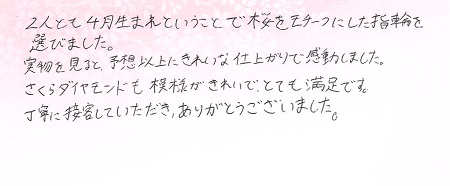 2人とも4月生まれということで桜をモチーフにした指輪を
選びました。
実物を見ると、予想以上にきれいな仕上がりで感動しました。
さくらダイヤモンドも模様がきれいで、とても満足です。
丁寧に接客していただき、ありがとうございました。